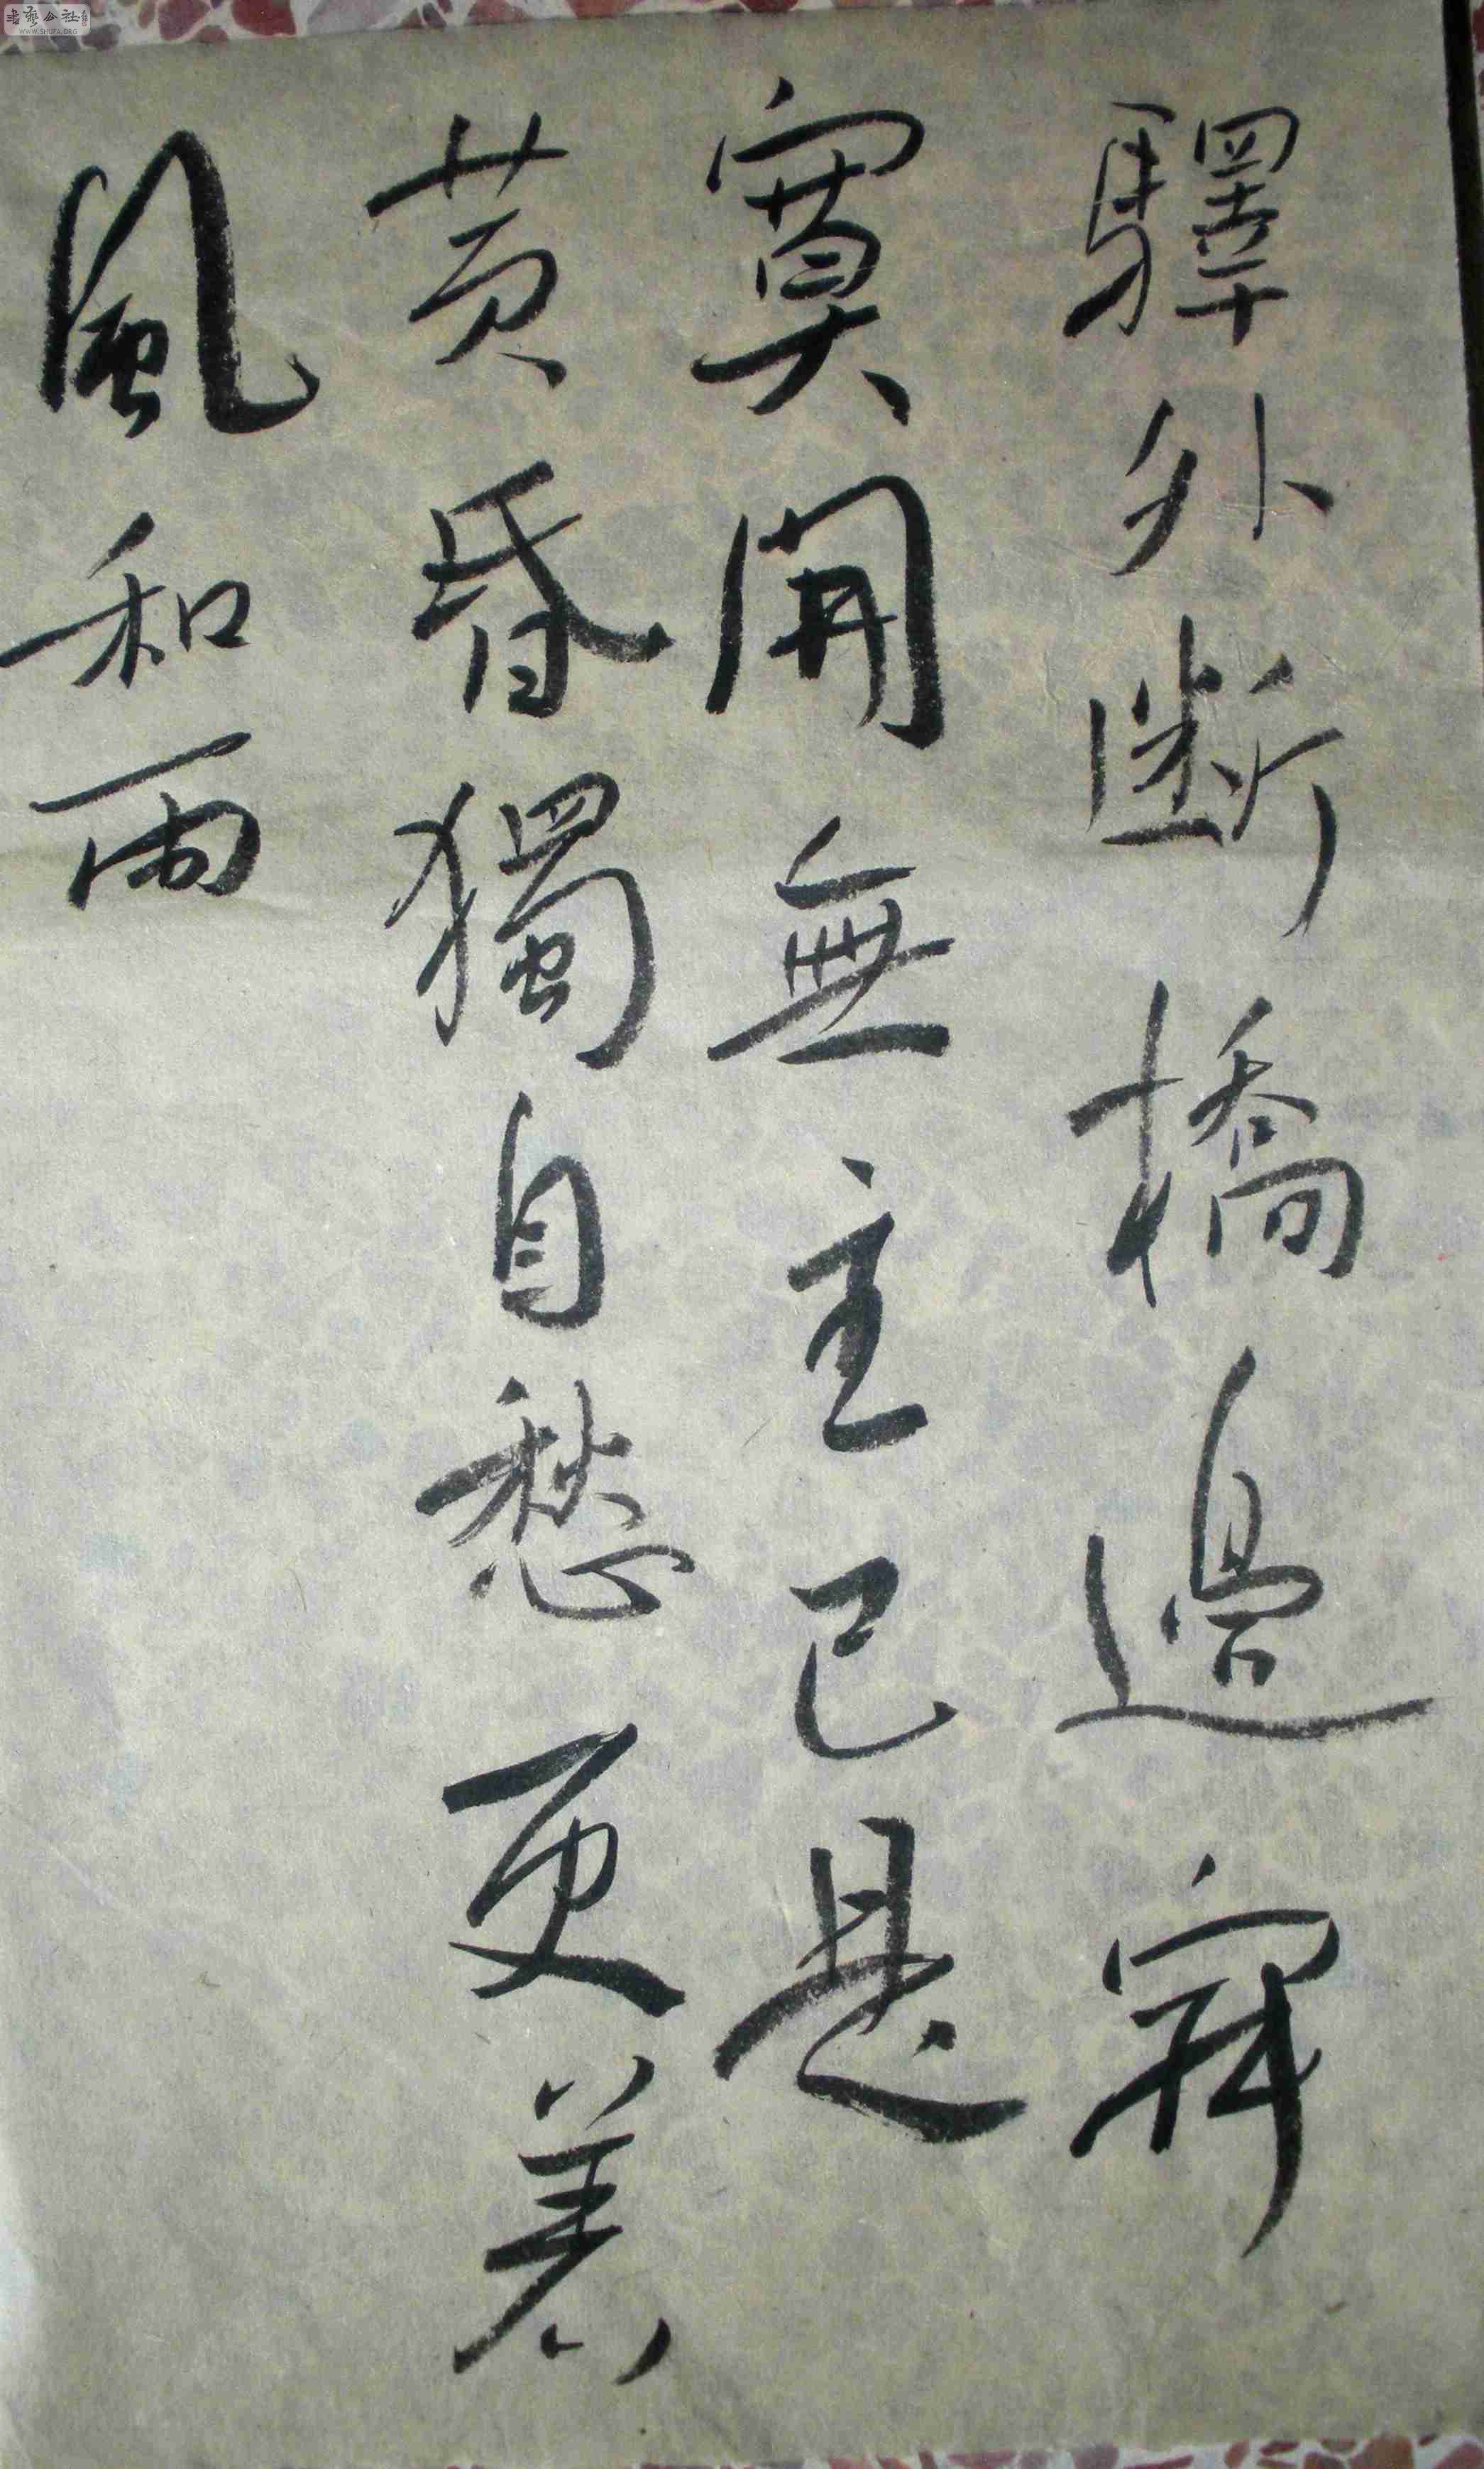 驛外斷橋邊寂
寞開無主已是
黄昏獨自愁更著
風和雨
WWW.SHUFA.ORG